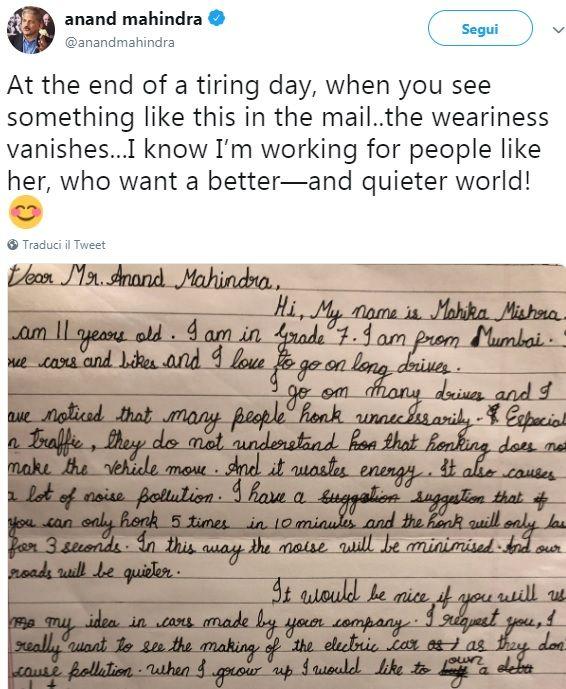 anand mahindra
@anandmahindra
Segui
At the end of a tiring day, when you see
something like this in the mail..the weariness
vanishes...I know I'm working for people like
her, who want a better—and quieter world!
😊
Traduci il Tweet
Dear Mr. Anand Mahindra,
Hi, My name is Mahika Mishra.
am 11 years old. I am in Grade 7. I am from Mumbai.
cars and bikes and I love to go on long drives.
I go om many drives and I
noticed that many people honk unnecessarily.
traffic, they do not understand that honking does
make the vehicle move. And it wastes energy. It also causes
a lot of noise pollution. I have a suggestion suggestion that if
you can only honk 5 times in 10 minutes and the honk will only
for 3 seconds. In this way the noise will be minimised. And our
roads will be quieter.
It would be nice if you will
my idea in cars made by your company. I request you, I
really want to see the making of the electric car as as they
cause pollution. When I grow up I would like to own a